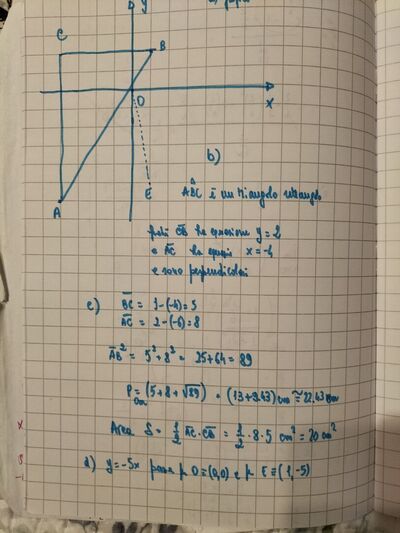 y
C
B
O
x
E
A
b)
ABC è un triangolo rettangolo
perché CB ha equazione y = 2
e AC ha equaz x = -4
e sono perpendicolari
c) BC = 1-(-4) = 5
AC = 2-(-6) = 8
AB² = 5²+8² = 25+64 = 89
P = (5+8+√89) cm = (13+9.43) cm ≅ 22,43 cm
Area S = 1/2 AC·CB = 1/2 · 8 · 5 cm² = 20 cm²
d) y = -5x passa p O≡(0,0) e p E≡(1,-5)